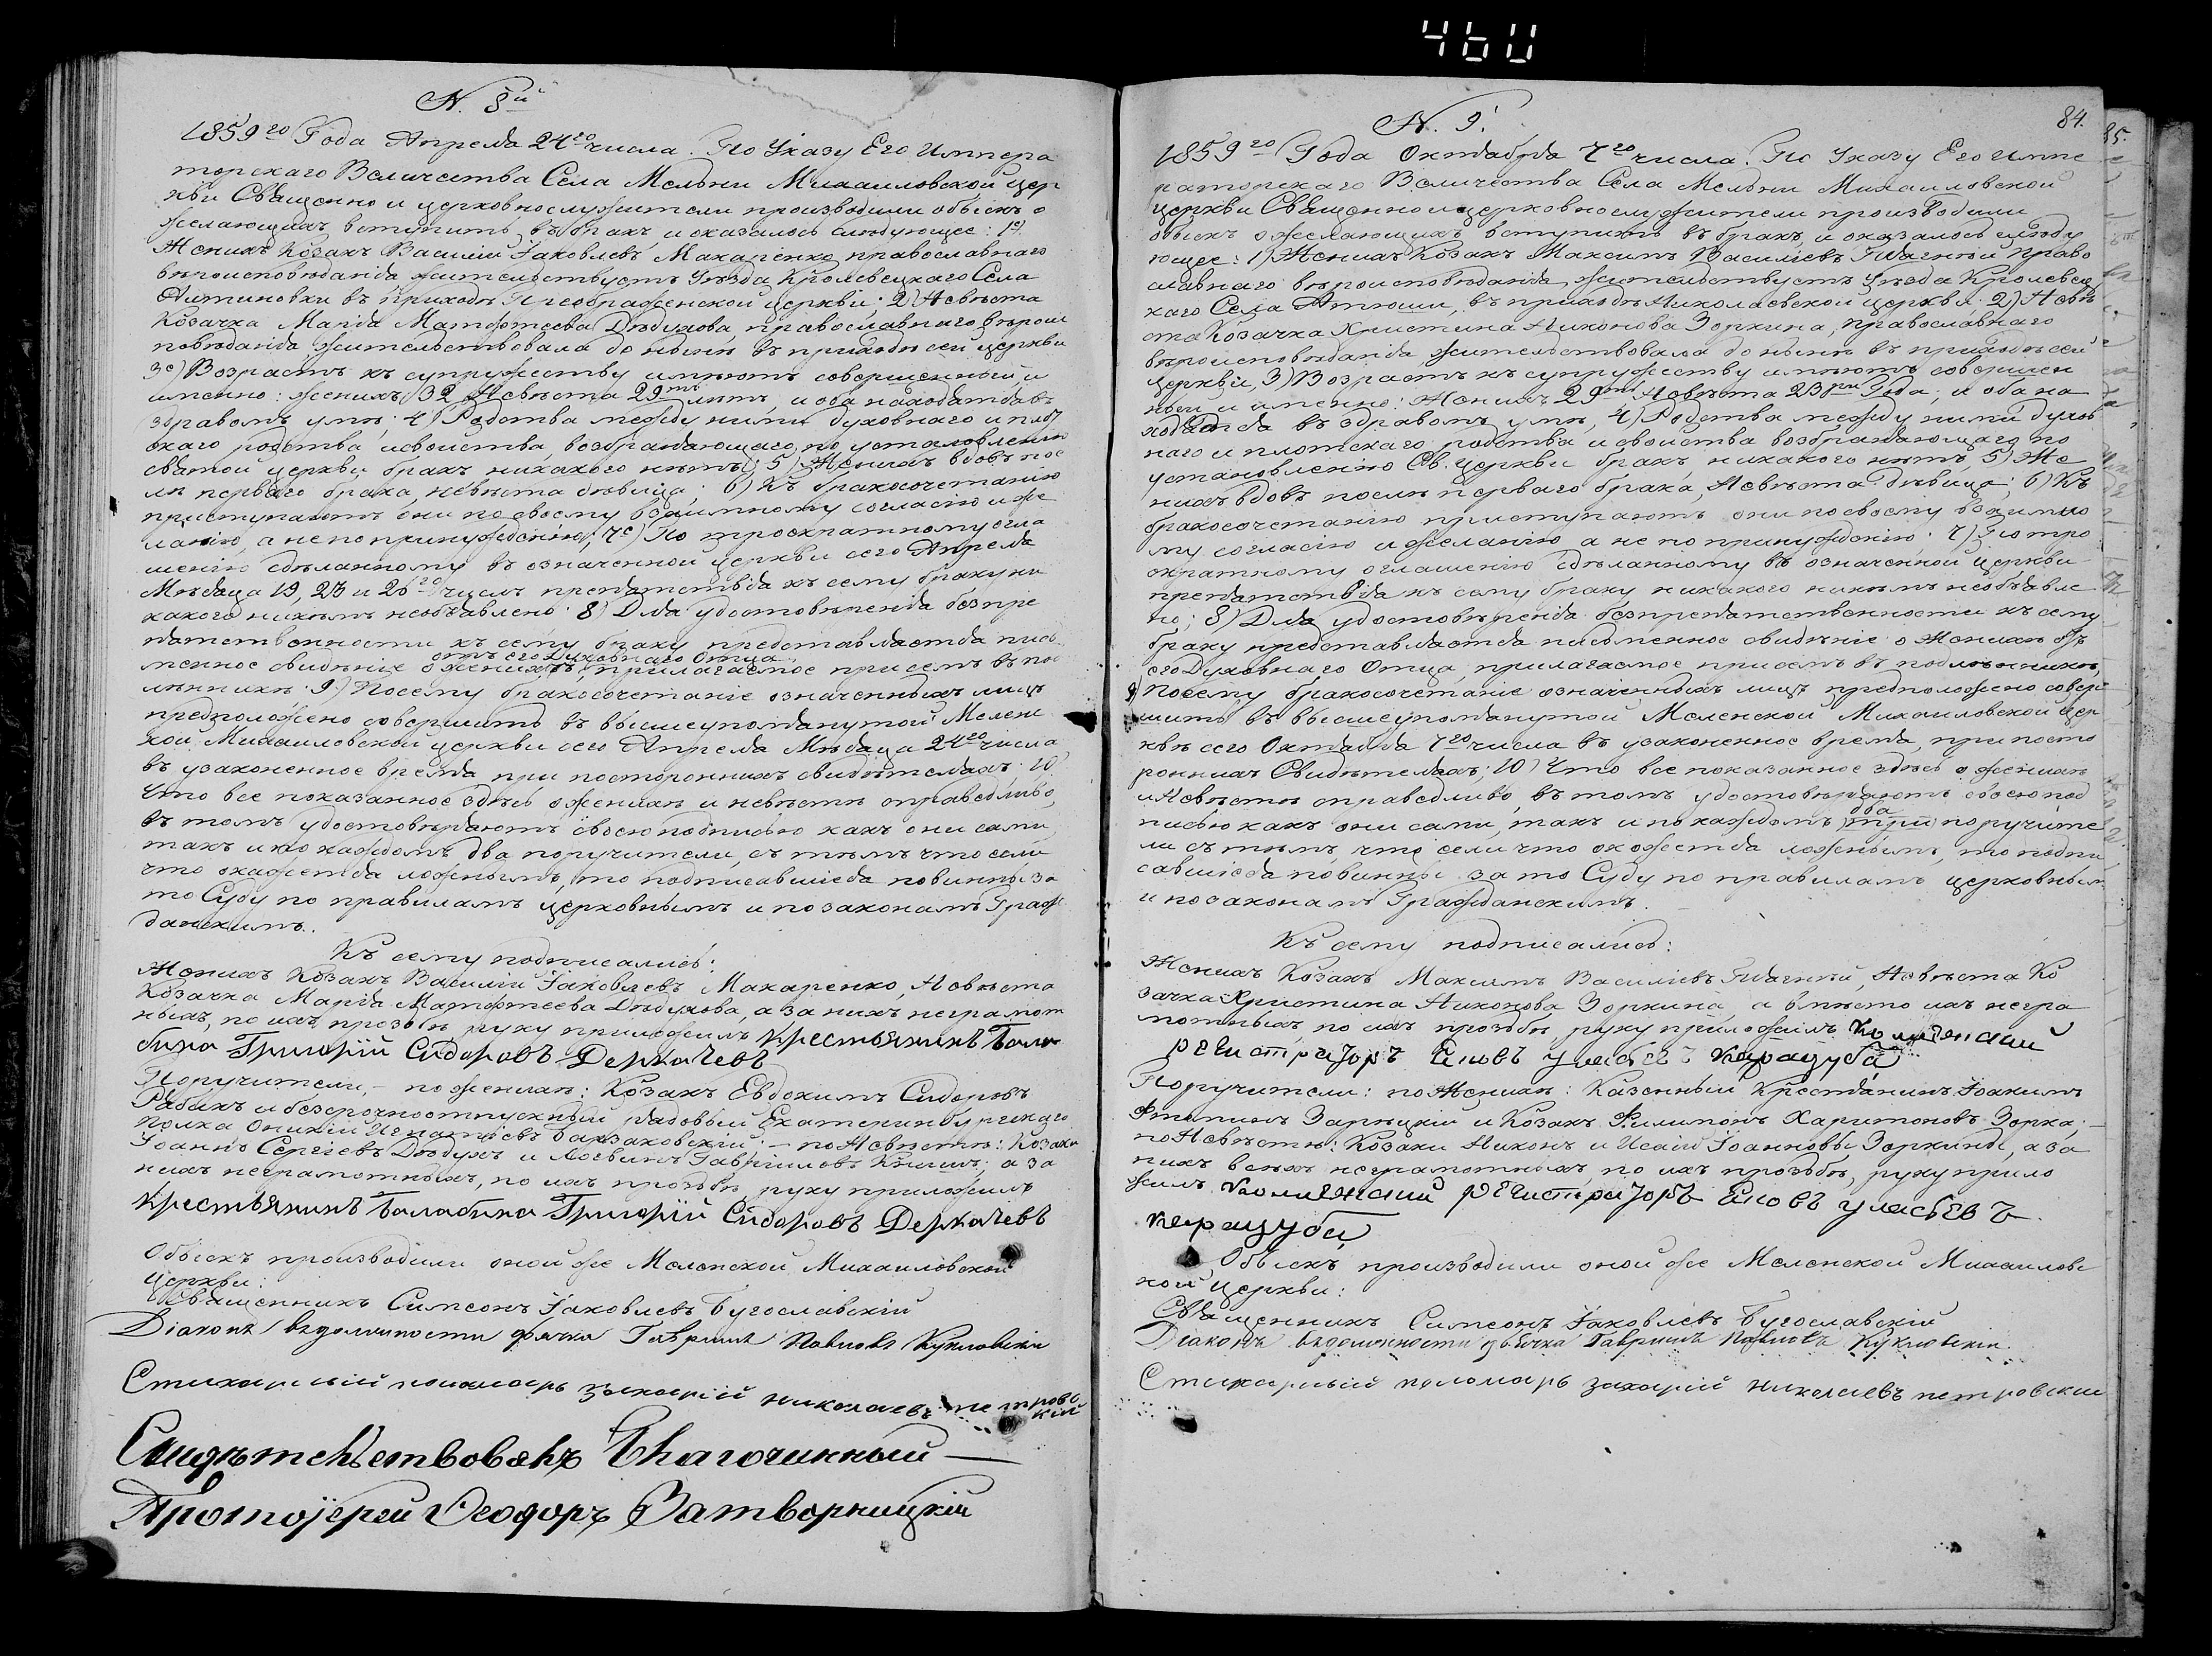 460
N. 8й
1859го Года Апреля 24го числа. По Указу Его Импера
торскаго Величества Села Мельни Михаиловской цер
кви Священно и церковнослужители производили обыскъ о
желающихъ вступить въ бракъ и оказалось слѣдующее: 1е)
Женихъ Козакъ Василій Іаковлевъ Макаренко православнаго
вѣроисповѣданія жительствуетъ Уѣзда Кролевецкаго Села
въ приходѣ Преображенской церкви; 2) Невѣста
Козачка Марія Матфтеева Дѣдухова, православнаго вѣроис
повѣданія жительствовала до нынѣ въ приходѣ сей церкви
3е) Возрастъ къ супружеству имѣютъ совершенный, и
именно: женихъ 32 Невѣста 29ть лѣтъ, и оба находятся въ
здравомъ умѣ; 4) Родства между ними духовнаго и плот
скаго родства и свойства, возбраняющаго по установленію
святой церкви бракъ никакого нѣтъ; 5) Женихъ вдовъ пос
лѣ перваго брака, невѣста дѣвица; 6) Къ бракосочетанію
приступаютъ они по своему взаимному согласію и же
ланію, а не по принужденію; 7е) По троекратному огла
шенію сдѣланному въ означенной церкви сего Апреля
Мѣсяца 19, 23 и 26го числъ препятствія къ сему браку ни
какого никѣмъ необъявлено. 8) Для удостовѣренія безпре
пятственности къ сему браку представляется пись
отъ его Духовнаго Отца
менное свидѣніе о женихѣ, прилагаемое присемъ въ под
лѣнникѣ. 9) Посему бракосочетаніе означенныхъ лицъ
предположено совершить въ вышеупомянутой Меленс
кой Михаиловской церкви сего Апреля Мѣсяца 24го числа
въ узаконенное время при постороннихъ свидѣтеляхъ; 10.
Что все показанное здѣсь о женихѣ и невѣстѣ справедливо,
въ томъ удостовѣряютъ своею подписью какъ они сами,
такъ и по каждомъ два поручители, съ тѣмъ что если
что окажется ложнымъ, то подписавшіеся повинны за
то Суду по правиламъ церковнымъ и по законамъ Граж
данскимъ.
Къ сему подписались:
Женихъ Козакъ Василій Іаковлевъ Макаренко, Невѣста
Козачка Марія Матфтеева Дѣдухова, а за нихъ неграмот
ныхъ, по ихъ прозьбѣ руку приложилъ Крестьянинъ Бала
бина Григорій Сидоровъ Деркачевъ
Поручители, – по женихѣ: Козакъ Евдокимъ Сидоровъ
Рабикъ и безсрочноотпускный рядовый Екатеринбургскаго
Полка Оникій Игнатіевъ – по Невѣстѣ: Козаки
Іоаннъ Сергіевъ Дѣдухъ и Гавріиловъ а за
нихъ неграмотныхъ, по ихъ прозьбѣ руку приложилъ
Крестьянинъ Балабина Григорій Сидоровъ Деркачевъ
Обыскъ производили оной же Меленской Михаиловской
Церкви:
Священникъ Симеонъ Іаковлевъ Бугославскій
Діаконъ въ должности дячка Гавріилъ Павловъ Кукловскій
Стихарный пономарь Захарій Николаевъ Петровс
кій
Свидѣтельствовалъ Благочинный —
Протоіерей Ѳеодоръ Затворницкій
84.
85.
N. 9.
1859го Года Октября 7го числа. По Указу Его Импе
раторскаго Величества Села Мельни Михаиловской
церкви Священно и церковнослужители производили
обыскъ о желающихъ вступить въ бракъ, и оказалось слѣду
ющее: 1) Женихъ Козакъ Максимъ Василіевъ Тягный Право
славнаго вѣроисповѣданія жительствуетъ Уѣзда Кролевец
каго Села Атюши, въ приходѣ Николаевской церкви. 2) Невѣ
ста Козачка Христина Никонова Зоркина, православнаго
вѣроисповѣданія жительствовала до нынѣ въ приходѣ сей
церкви, 3) Возрастъ къ супружеству имѣютъ совершен
ный и именно: Женихъ 29ть Невѣста 23ри Года, и оба на
ходятся въ здравомъ умѣ, 4) Родства между ними духов
наго и плотскаго родства и свойства возбраняющаго по
установленію Св. Церкви бракъ никакого нѣтъ, 5) Же
нихъ вдовъ послѣ перваго брака, Невѣста дѣвица; 6) Къ
бракосочетанію приступаютъ они по своему взаимно
му согласію и желанію а не по принужденію. 7) По тро
екратному оглашенію сдѣланному въ означенной церкви
препятствія къ сему браку никакого никѣмъ необъявле
но; 8) Для удостовѣренія безпрепятственности къ сему
браку представляется письменное свидѣніе о Женихѣ отъ
его Духовнаго Отца, прилагаемое присемъ въ подлѣнникѣ,
9) Посему бракосочетаніе означенныхъ лицъ предположено совер
шить въ вышеупомянутой Меленской Михаиловской Цер
квѣ сего Октября 7го числа въ узаконенное время, при посто
роннихъ Свидѣтеляхъ; 10) Что все показанное здѣсь о женихѣ
и Невѣстѣ справедливо, въ томъ удостовѣряютъ своею под
два
писью какъ они сами, такъ и по каждомъ три поручите
ли съ тѣмъ, что если что окажется ложнымъ, то подпи
савшіеся повинны за то Суду по правиламъ церковнымъ
и по законамъ Гражданскимъ.
Къ сему подписались:
Женихъ Козакъ Максимъ Василіевъ Тягный, Невѣста Ко
зачка Христина Никонова Зоркина, а вмѣсто ихъ негра
мотныхъ, по ихъ прозьбѣ руку приложилъ Колижский
регистраторъ Яковъ Уласьевъ Карацуба
Поручители: по Женихѣ: Казенный Крестянинъ Іоакимъ
Зарецкій и Козакъ Филимонъ Харитоновъ Зорка; –
по Невѣстѣ: Козаки Никонъ и Исаій Іоанновы Зоркины, а за
нихъ всѣхъ неграмотныхъ, по ихъ прозьбѣ, руку прило
жилъ Колижский регистраторъ Яковъ Уласьевъ
Карацуба
Обыскъ производили оной же Меленской Михаиловс
кой Церкви:
Священникъ Симеонъ Іаковлевъ Бугославскій
Діаконъ въ должности дьячка Гавріилъ Павловъ Кукловскій
Стихарный пономарь Захарій Николаевъ Петровскій